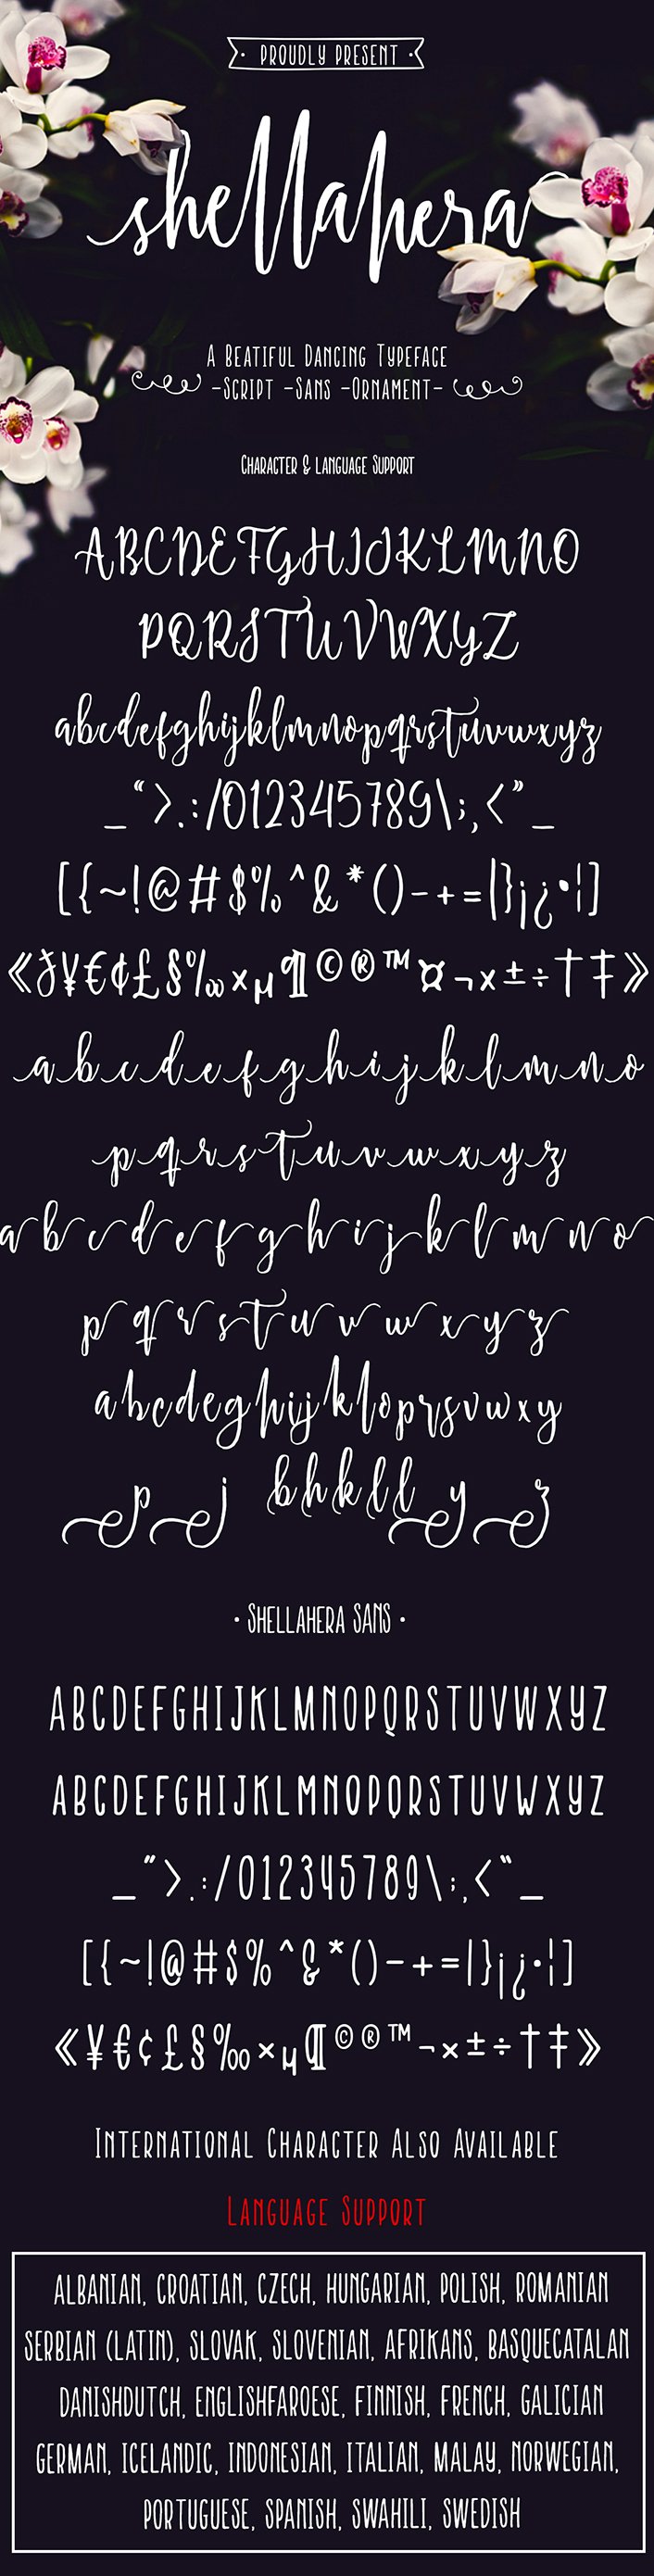 PROUDLY PRESENT
shellahera
A BEATIFUL DANCING TYPEFACE
-SCRIPT -SANS -ORNAMENT-
CHARACTER & LANGUAGE SUPPORT
ABCDEFGHIJKLMNO
PQRSTUVWXYZ
abcdefghijklmnopqrstuvwxyz
_“>.:/012345789\;,<”_
[{~!@#$%^&*()-+=|}¡¿•¦]
«₰¥€¢£§‰×µ¶©®™¤¬×±÷†‡»
abcdefghijklmno
pqrstuvwxyz
abcdefghijklmno
pqrstuvwxyz
abcdeghijjkloprsvwxy
p j bhkll y z
• SHELLAHERA SANS •
ABCDEFGHIJKLMNOPQRSTUVWXYZ
ABCDEFGHIJKLMNOPQRSTUVWXYZ
_”>.:/012345789\;,<“_
[{~!@#$%^&*()-+=|}¡¿•¦]
«¥€¢£§‰×µ¶©®™¬×±÷†‡»
INTERNATIONAL CHARACTER ALSO AVAILABLE
LANGUAGE SUPPORT
ALBANIAN, CROATIAN, CZECH, HUNGARIAN, POLISH, ROMANIAN
SERBIAN (LATIN), SLOVAK, SLOVENIAN, AFRIKANS, BASQUECATALAN
DANISHDUTCH, ENGLISHFAROESE, FINNISH, FRENCH, GALICIAN
GERMAN, ICELANDIC, INDONESIAN, ITALIAN, MALAY, NORWEGIAN,
PORTUGUESE, SPANISH, SWAHILI, SWEDISH